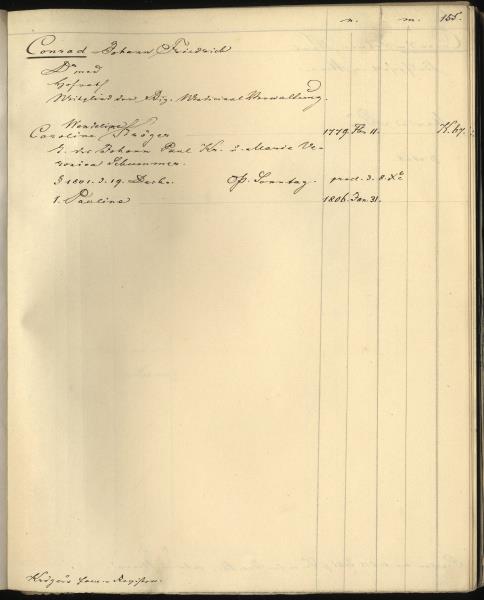 n. m. 155.
Conrad Johann Friedrich
Dr med
Hofrath
Mitglied der Dzg. Medicinal Verwaltung.
Wendeline
Caroline Kröger 1779. 11. K. 67.
T. des Johann Paul Kr. u. Marie Ve-
ronica Schummer.
§ 1801. d. 19. Decbr. Sonntag. procl. d. 8. X
1. Pauline 1806. Jan. 31.
Kröger's